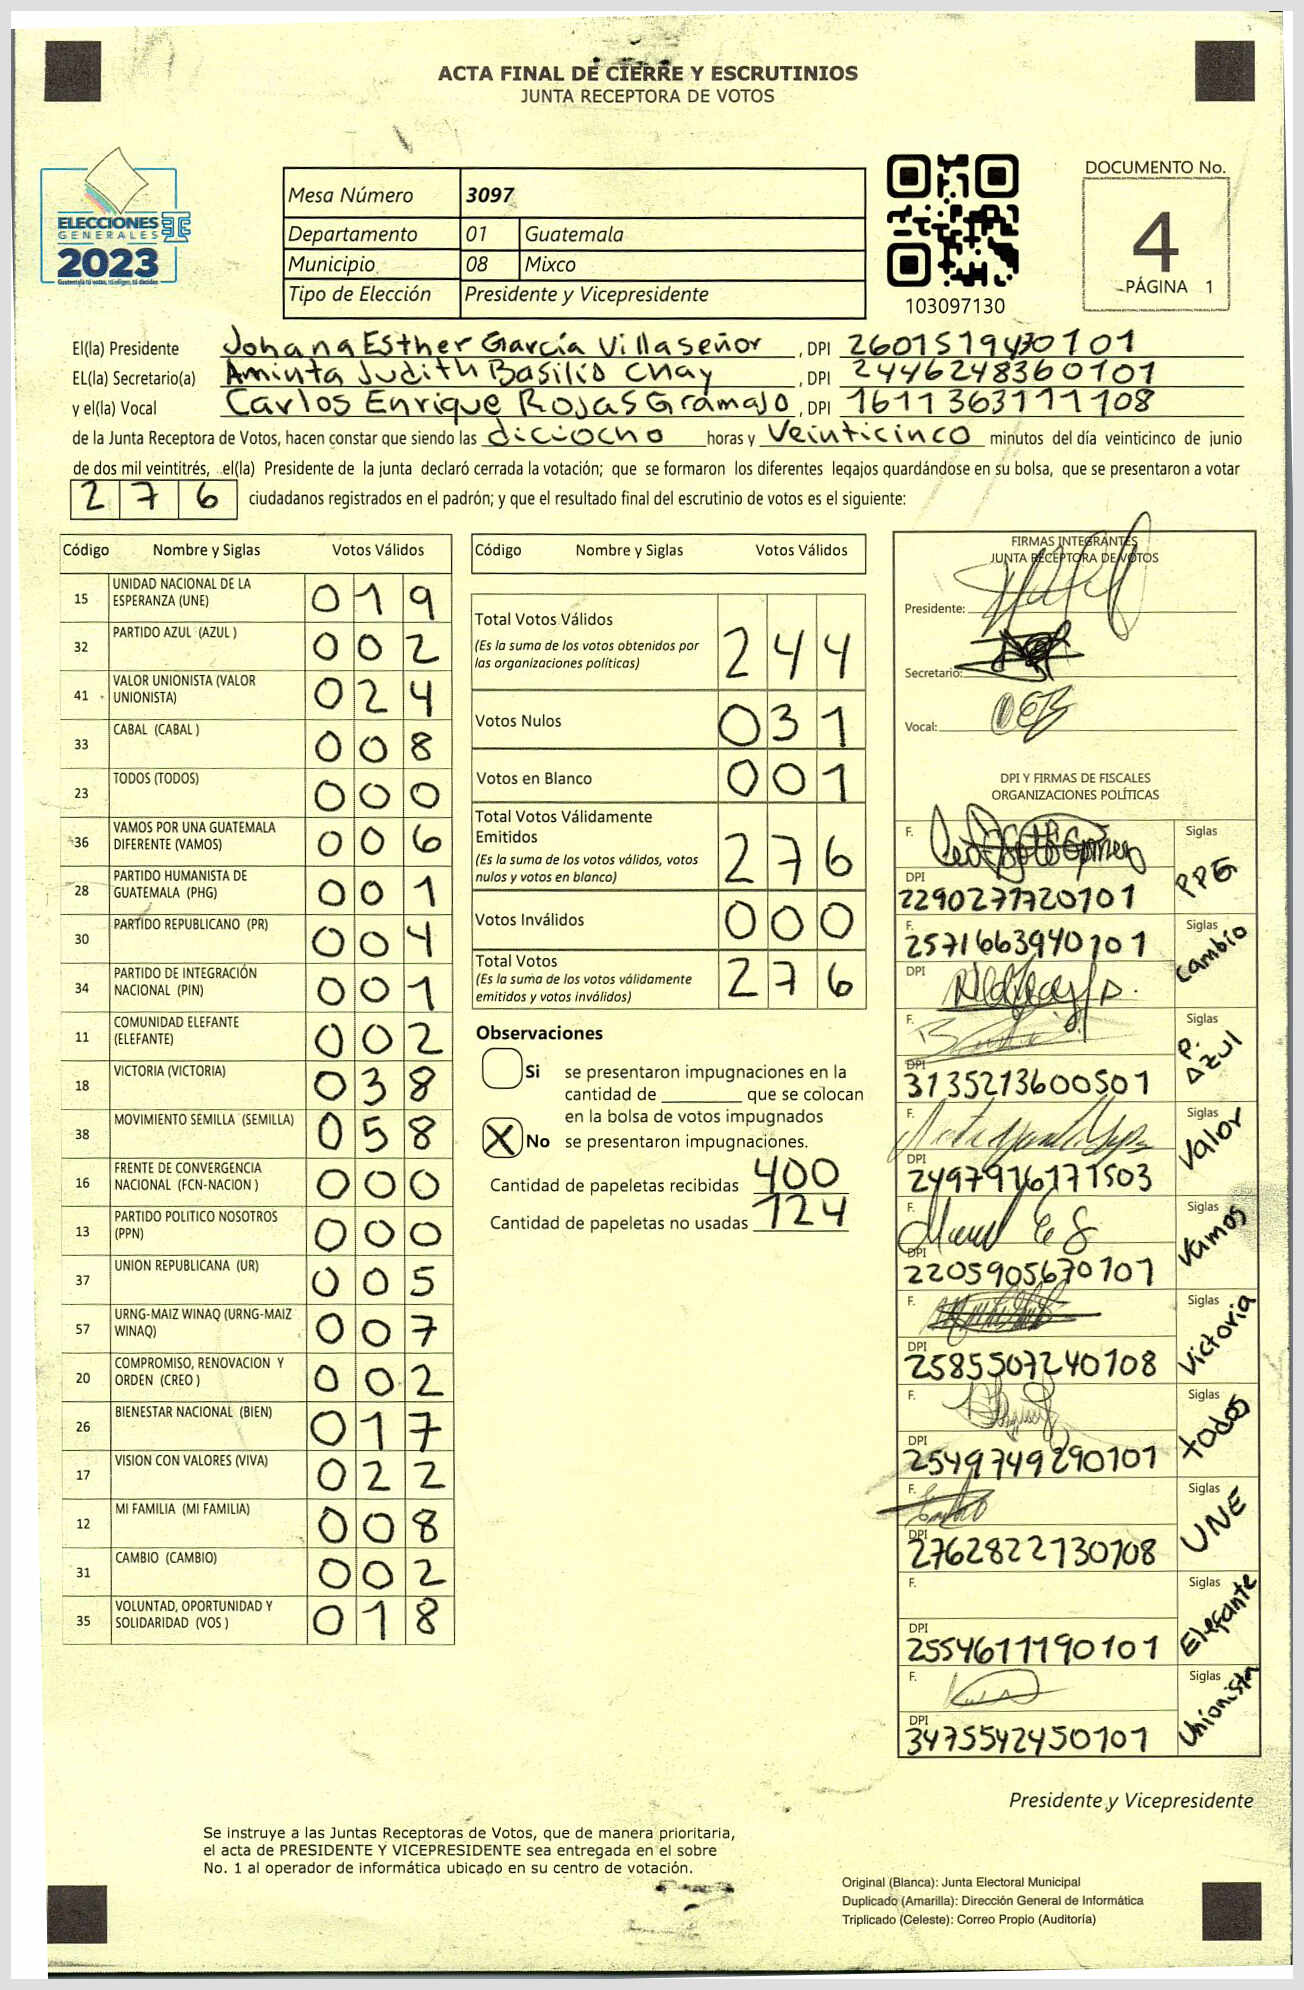 ACTA FINAL DE CIERRE Y ESCRUTINIOS
JUNTA RECEPTORA DE VOTOS
ELECCIONES
GENERALES
2023
Guatemala tú votas, tú eliges, tú decides
Mesa Número 3097
Departamento 01 Guatemala
Municipio 08 Mixco
Tipo de Elección Presidente y Vicepresidente
103097130
DOCUMENTO No.
4
PÁGINA 1
El(la) Presidente Johana Esther García Villaseñor, DPI 2601519470101
EL(la) Secretario(a) Aminta Judith Basilio Chay, DPI 2446248360101
y el(la) Vocal Carlos Enrique Rojas Gramajo, DPI 1611363111108
de la Junta Receptora de Votos, hacen constar que siendo las dieciocho horas y Veinticinco minutos del día veinticinco de junio
de dos mil veintitrés, el(la) Presidente de la junta declaró cerrada la votación; que se formaron los diferentes legajos quardándose en su bolsa, que se presentaron a votar
276 ciudadanos registrados en el padrón; y que el resultado final del escrutinio de votos es el siguiente:
Código Nombre y Siglas Votos Válidos
15 UNIDAD NACIONAL DE LA ESPERANZA (UNE) 019
32 PARTIDO AZUL (AZUL ) 002
41 VALOR UNIONISTA (VALOR UNIONISTA) 024
33 CABAL (CABAL ) 008
23 TODOS (TODOS) 000
36 VAMOS POR UNA GUATEMALA DIFERENTE (VAMOS) 006
28 PARTIDO HUMANISTA DE GUATEMALA (PHG) 001
30 PARTIDO REPUBLICANO (PR) 004
34 PARTIDO DE INTEGRACIÓN NACIONAL (PIN) 001
11 COMUNIDAD ELEFANTE (ELEFANTE) 002
18 VICTORIA (VICTORIA) 038
38 MOVIMIENTO SEMILLA (SEMILLA) 058
16 FRENTE DE CONVERGENCIA NACIONAL (FCN-NACION ) 000
13 PARTIDO POLITICO NOSOTROS (PPN) 000
37 UNION REPUBLICANA (UR) 005
57 URNG-MAIZ WINAQ (URNG-MAIZ WINAQ) 007
20 COMPROMISO, RENOVACION Y ORDEN (CREO ) 002
26 BIENESTAR NACIONAL (BIEN) 017
17 VISION CON VALORES (VIVA) 022
12 MI FAMILIA (MI FAMILIA) 008
31 CAMBIO (CAMBIO) 002
35 VOLUNTAD, OPORTUNIDAD Y SOLIDARIDAD (VOS ) 018
Código Nombre y Siglas Votos Válidos
Total Votos Válidos 244
(Es la suma de los votos obtenidos por
las organizaciones políticas)
Votos Nulos 031
Votos en Blanco 001
Total Votos Válidamente
Emitidos 276
(Es la suma de los votos válidos, votos
nulos y votos en blanco)
Votos Inválidos 000
Total Votos 276
(Es la suma de los votos válidamente
emitidos y votos inválidos)
Observaciones
Si se presentaron impugnaciones en la
cantidad de ________ que se colocan
en la bolsa de votos impugnados
X No se presentaron impugnaciones.
Cantidad de papeletas recibidas 400
Cantidad de papeletas no usadas 124
FIRMAS INTEGRANTES
JUNTA RECEPTORA DE VOTOS
Presidente:
Secretario:
Vocal:
DPI Y FIRMAS DE FISCALES
ORGANIZACIONES POLÍTICAS
F. Siglas PPG
DPI 2290271720101
F. 2571663940101 Siglas Cambio
DPI
F. Siglas P. Azul
DPI 3135213600501
F. Siglas Valor
DPI 2497916171503
F. Siglas Vamos
DPI 2205905670101
F. Siglas Victoria
DPI 2585507240108
F. Siglas todos
DPI 2549749290101
F. Siglas UNE
DPI 2762822130108
F. Siglas Elefante
DPI 2554611190101
F. Siglas Unionista
DPI 3475542450101
Presidente y Vicepresidente
Se instruye a las Juntas Receptoras de Votos, que de manera prioritaria,
el acta de PRESIDENTE Y VICEPRESIDENTE sea entregada en el sobre
No. 1 al operador de informática ubicado en su centro de votación.
Original (Blanca): Junta Electoral Municipal
Duplicado (Amarilla): Dirección General de Informática
Triplicado (Celeste): Correo Propio (Auditoría)